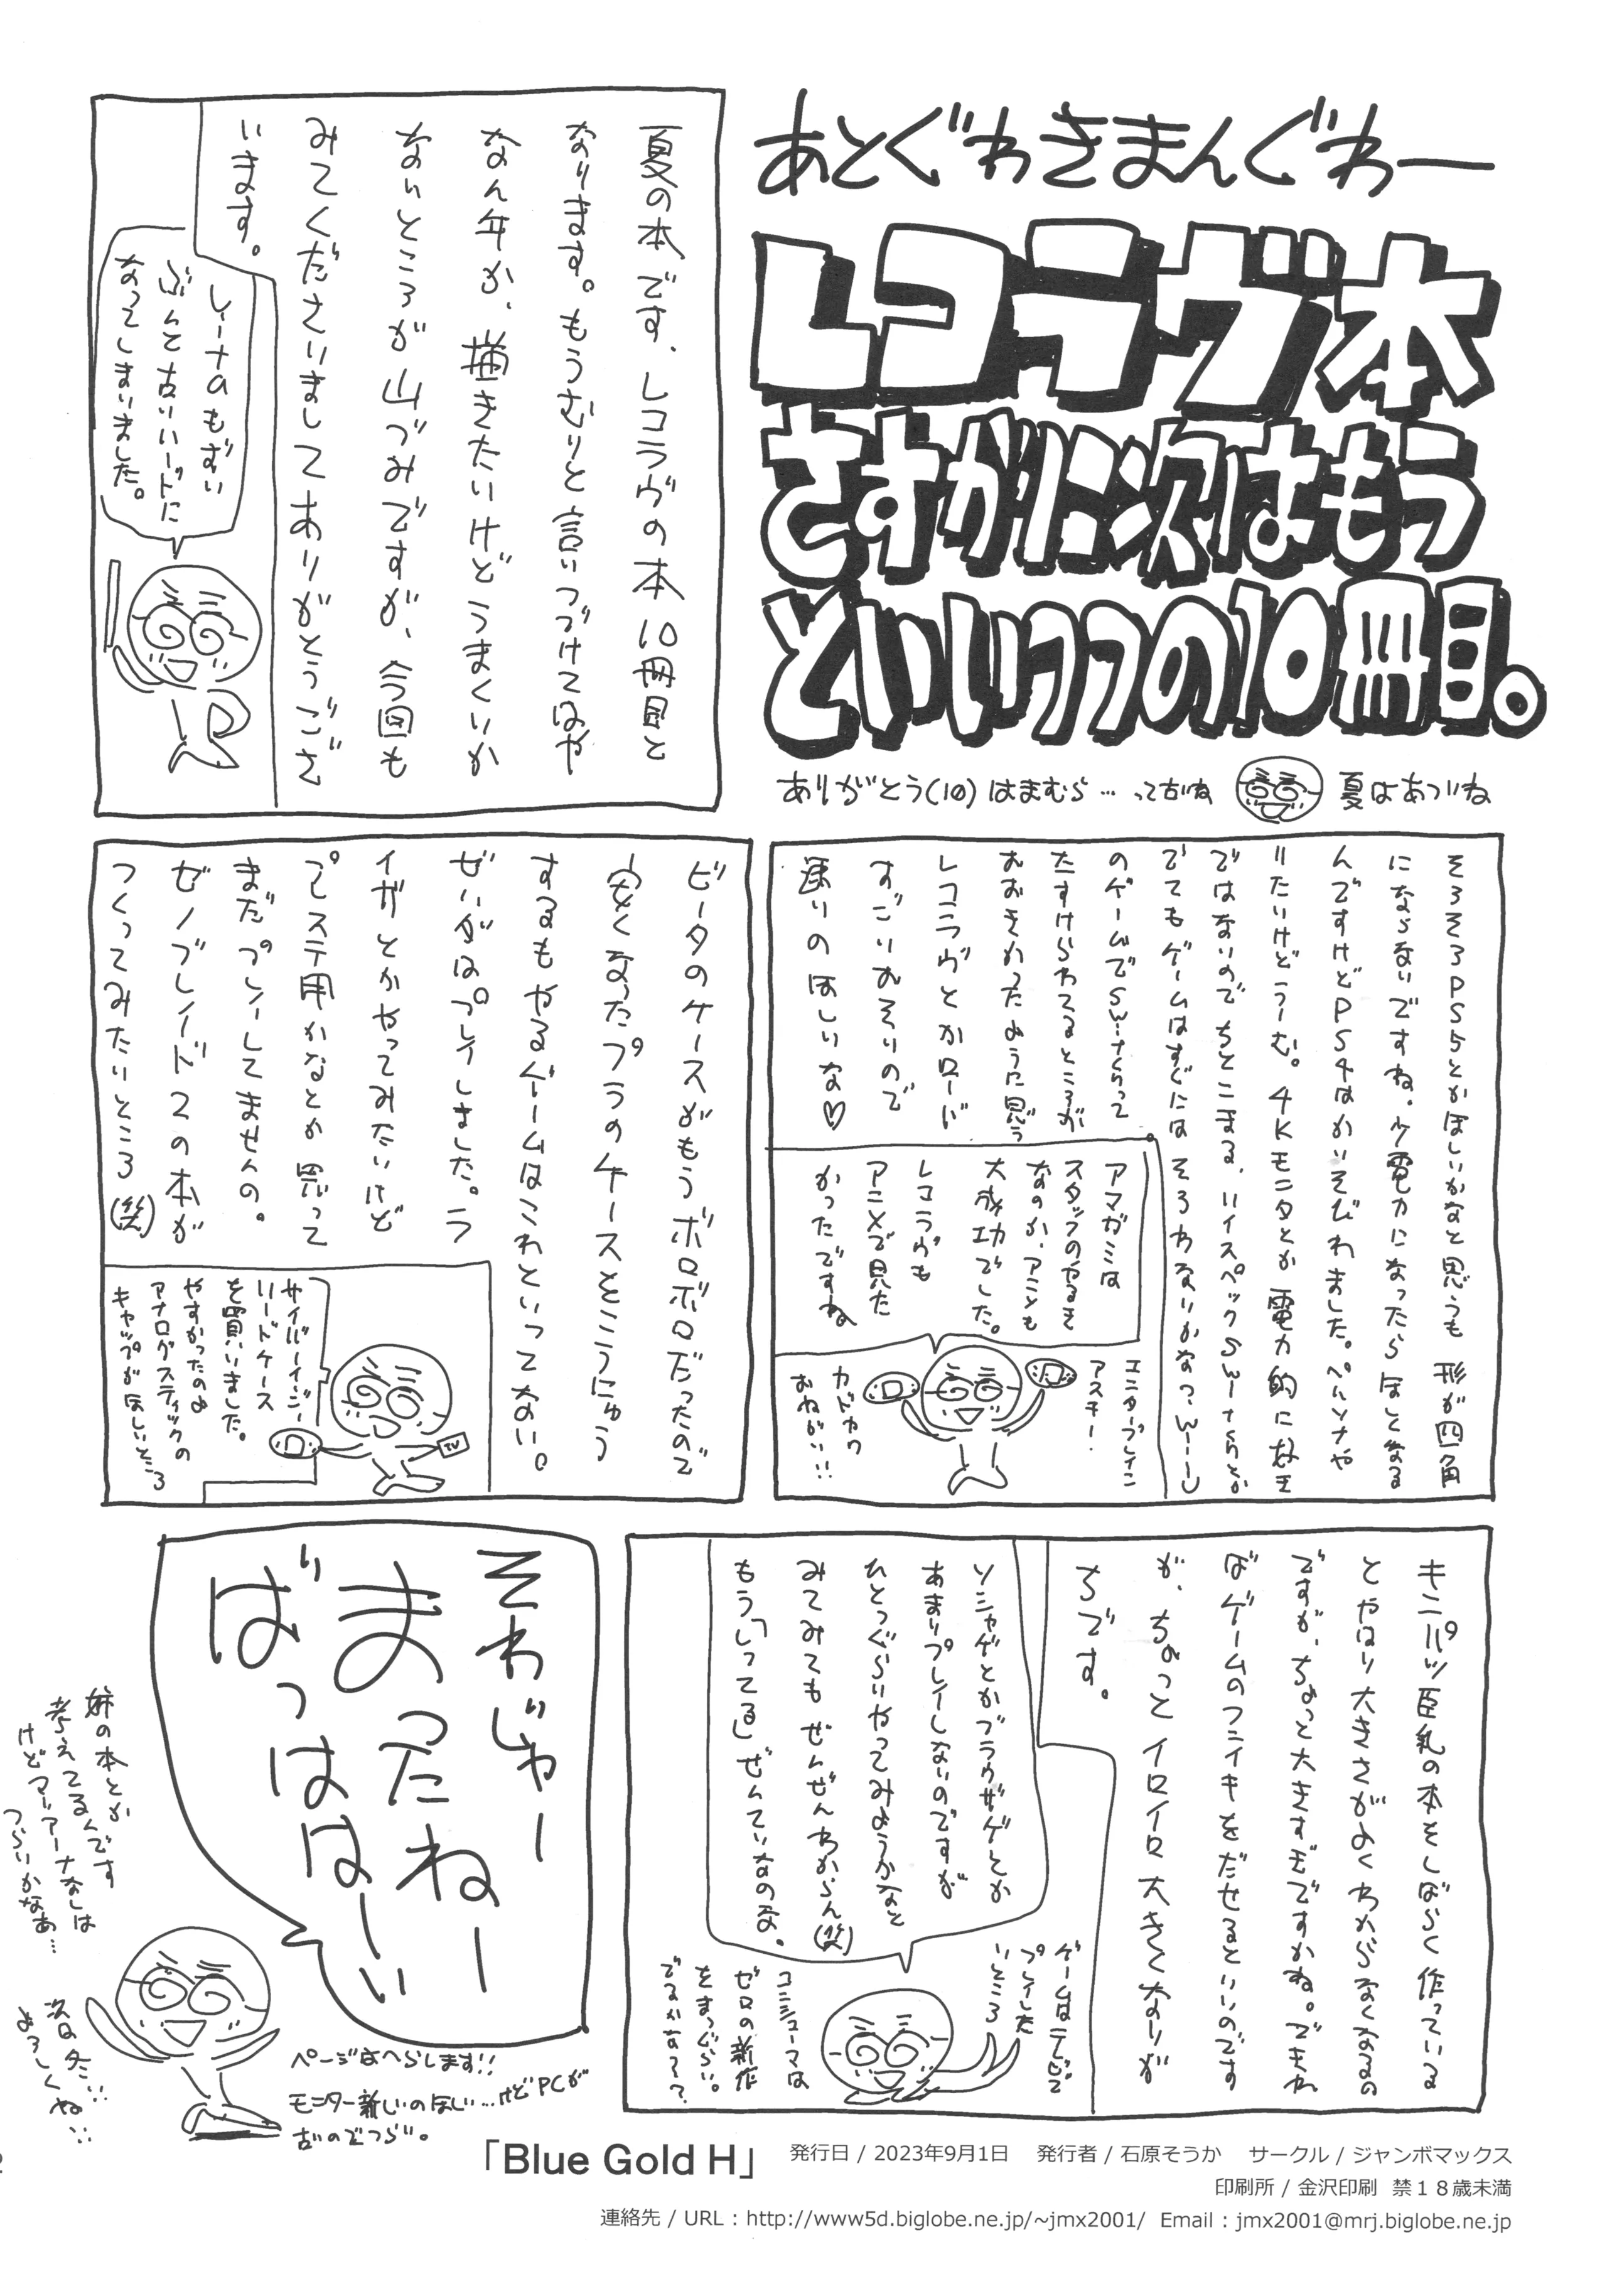 あとぐわきまんぐわー
レコラヴ本
さすがに次はもう
といいつつの10冊目。
ありがとう(10)はまむら…って古いね
夏はあついね
夏の本です、レコラヴの本10冊目と
なります。もうむりと言いつづけてはや
なん年か、描きたいけどうまくいか
ないところが山づみですが、今回も
みてくださいましてありがとうござ
います。
もずい
ぶんと古いハードに
なってしまいました。
そろそろPS5とかほしいかなと思うも 形が四角
にならないですね。少電力になったらほしくなる
んですけどPS4はかいそびれました。ペルソナや
りたいけどうーむ。4Kモニタとか 電力的に好き
ではないので ちとこまる、ハイスペックSwitchとか
でてもゲームはすぐには そろわないかなっ。
のゲームでSwitchって
たすけられてるところが
おおきかったように思う
レコラヴとかロード
すごいおそいので
速いのほしいな♡
アマガミは
スタッフのやるき
なのか、アニメも
大成功でした。
レコラヴも
アニメで見た
かったですね
エンターブレイン
アスキー!
カドカワ
おねがい!!
ビータのケースがもうボロボロだったので
安くなったプラのケースをこうにゅう
するもやるゲームはこれといってない。
ぜいがはプレイしました。ラ
イザとかやってみたいけど
プレステ用かなとか 思って
まだプレイしてませんの。
ゼノブレイド2の本が
つくってみたいところ(笑)
サイバーイジー
ハードケース
を買いました。
やすかったのよ
アナログスティックの
キャップがほしいところ
TV
キニパツ巨乳の本をしばらく作っている
とやはり大きさがよくわからなくなるの
ですが、ちょっと大きすぎですかね。できれ
ばゲームのフンイキをだせるといいのです
が、ちょっとイロイロ大きくなりが
ちです。
ソシャゲとかブラウザゲとか
あまりプレイしないのですが
ひとつぐらいやってみようかなと
みてみても ぜんぜんわからん(笑)
もう「いってる」ぜんていなのな。
ゲームはテレビで
プレイしたい
ところ
コンシューマは
ゼロの新作
をまつぐらい。
でるかな??
それじゃー
まったねー
ばっはは〜い
妹の本とか
考えてるんです
けどマリアーナなしは
つらいかなあ…
次は冬!!
よろしくね!!
ページはへらします!!
モニター新しいのほしい…けどPCが
古いのでつらい。
「Blue Gold H」
発行日 / 2023年9月1日　発行者 / 石原そうか　サークル / ジャンボマックス
印刷所 / 金沢印刷　禁１８歳未満
連絡先 / URL : http://www5d.biglobe.ne.jp/~jmx2001/ Email : jmx2001@mrj.biglobe.ne.jp